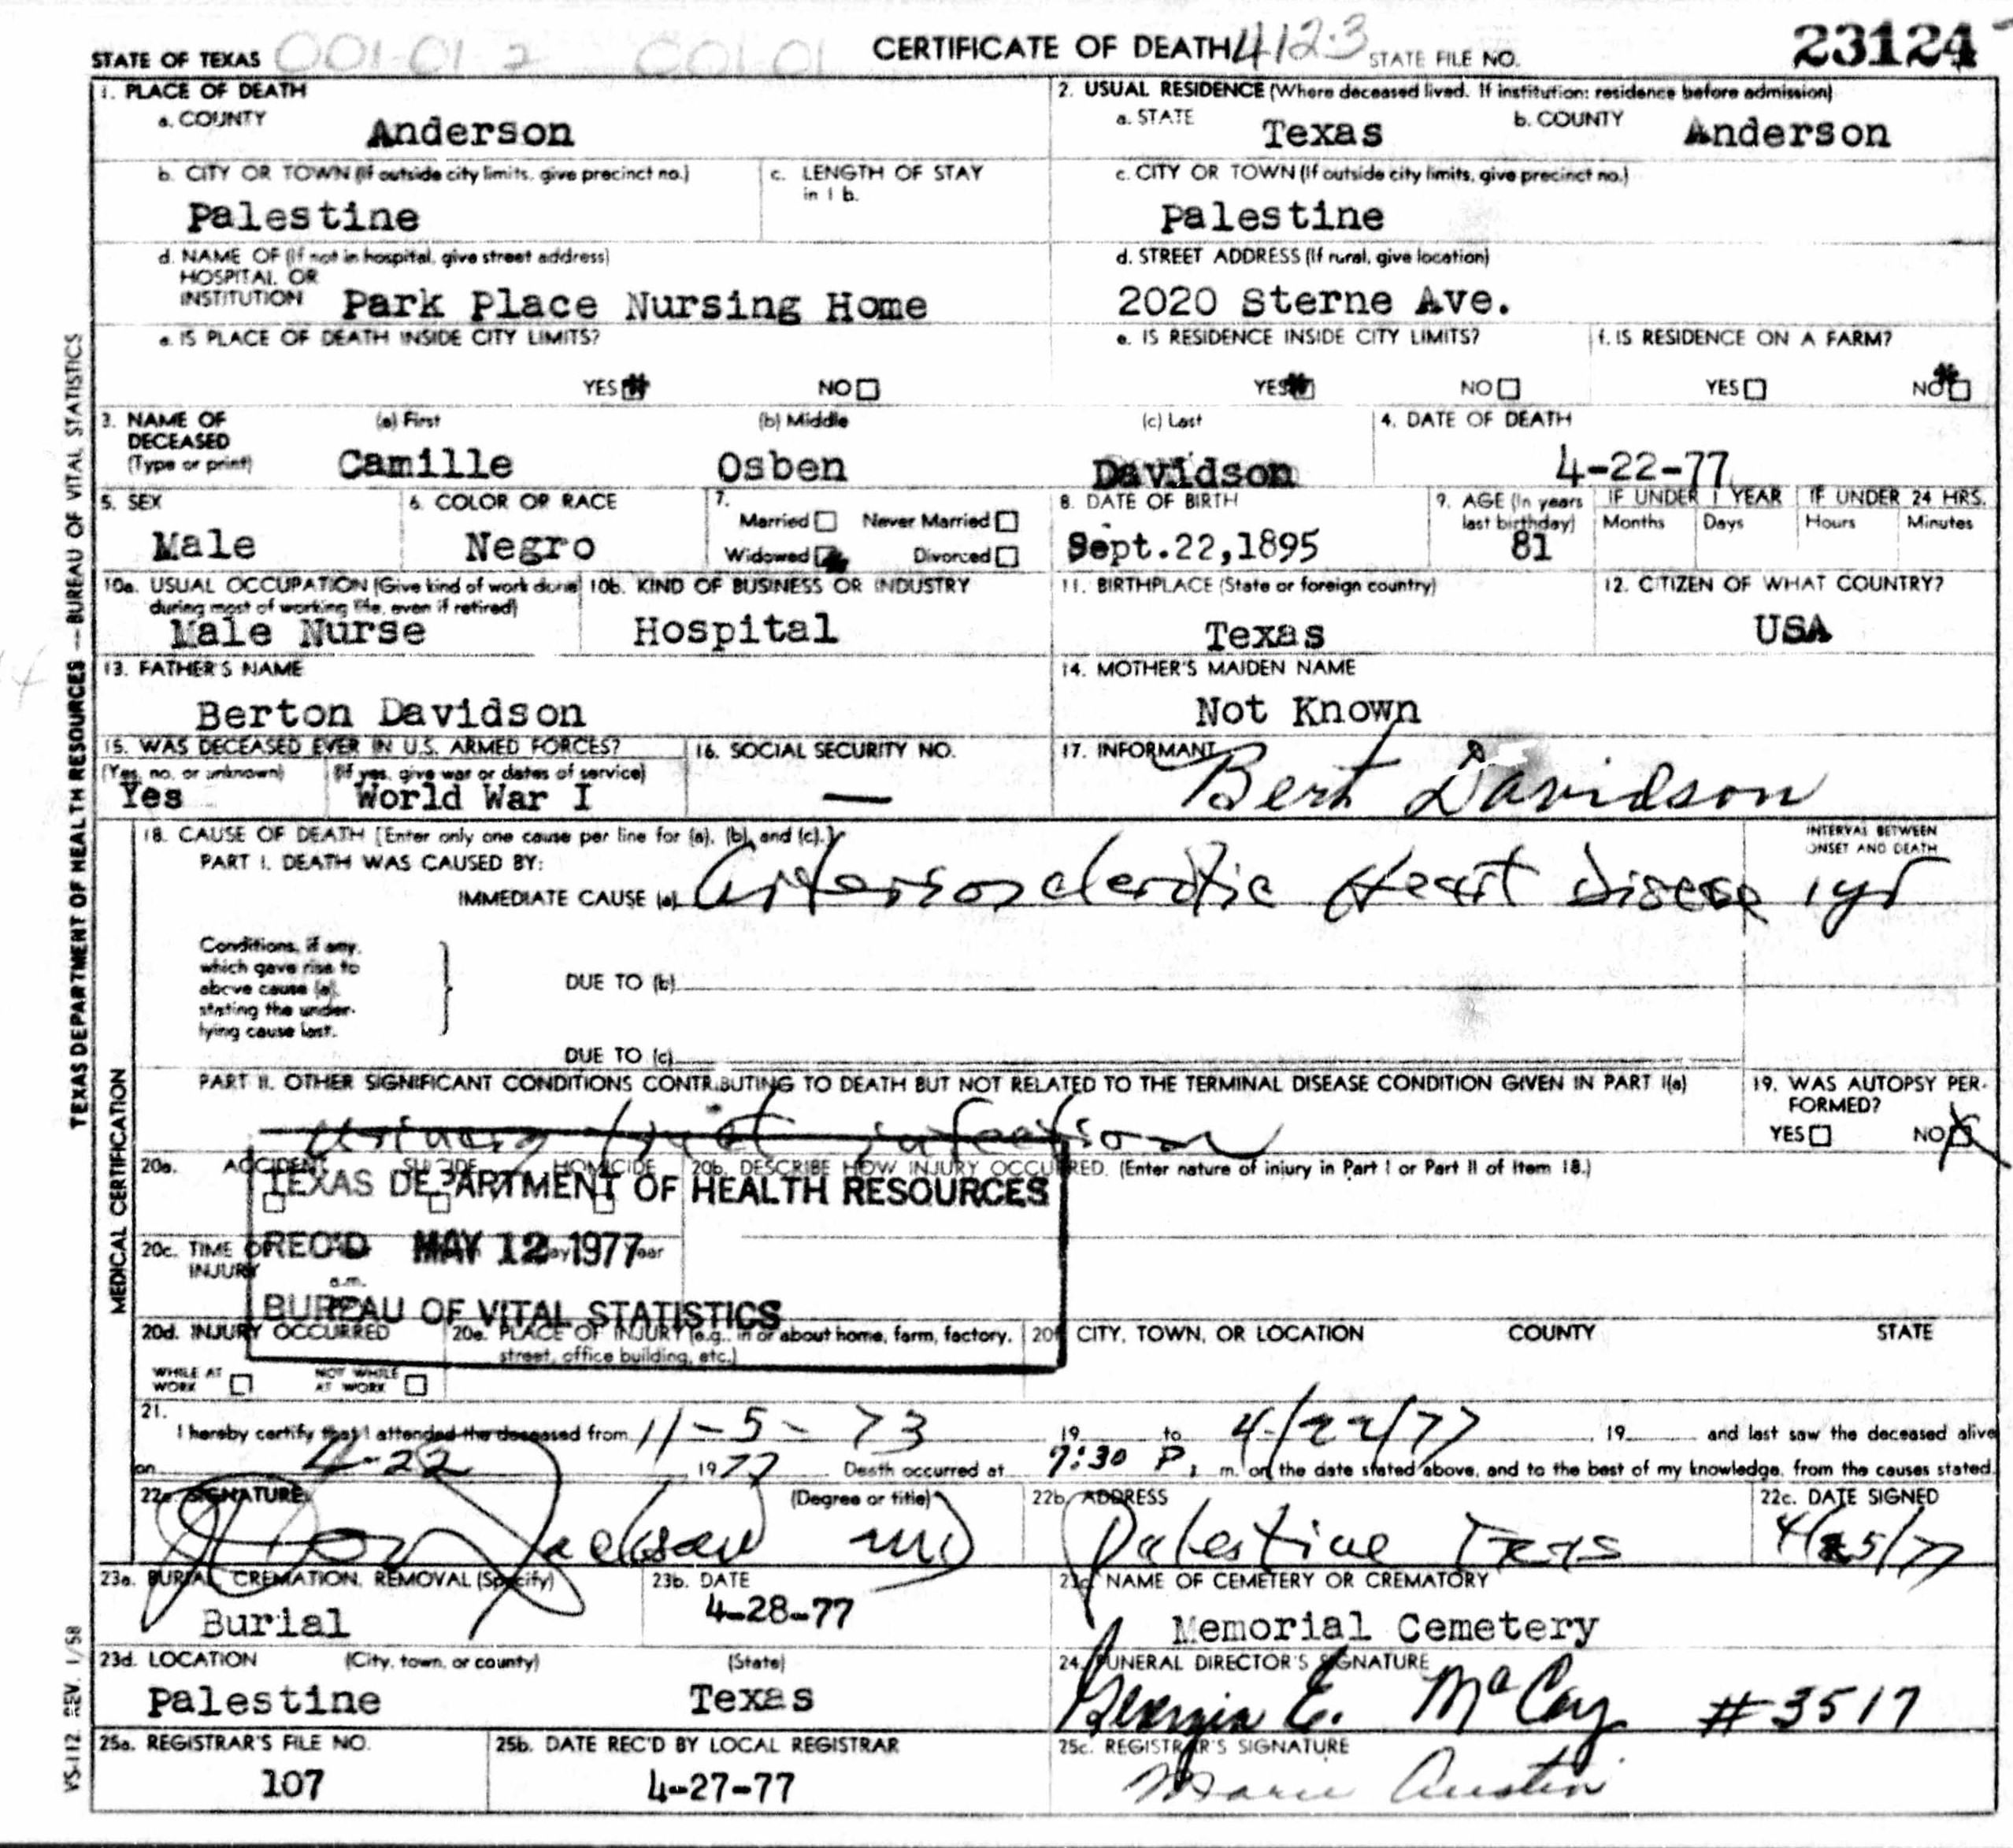 STATE OF TEXAS 001-01 2 001-01 CERTIFICATE OF DEATH 4123 STATE FILE NO. 23124
1. PLACE OF DEATH
a. COUNTY Anderson
2. USUAL RESIDENCE (Where deceased lived. If institution: residence before admission)
a. STATE Texas b. COUNTY Anderson
b. CITY OR TOWN (If outside city limits, give precinct no.) Palestine
c. LENGTH OF STAY in 1 b.
c. CITY OR TOWN (If outside city limits, give precinct no.) Palestine
d. NAME OF (If not in hospital, give street address)
HOSPITAL OR
INSTITUTION Park Place Nursing Home
d. STREET ADDRESS (If rural, give location)
2020 Sterne Ave.
e. IS PLACE OF DEATH INSIDE CITY LIMITS?
YES NO
e. IS RESIDENCE INSIDE CITY LIMITS?
YES NO
f. IS RESIDENCE ON A FARM?
YES NO
3. NAME OF DECEASED (Type or print)
(a) First Camille
(b) Middle Osben
(c) Last Davidson
4. DATE OF DEATH
4-22-77
5. SEX
Male
6. COLOR OR RACE
Negro
7.
Married Never Married
Widowed Divorced
8. DATE OF BIRTH
Sept.22,1895
9. AGE (In years last birthday)
81
IF UNDER 1 YEAR
Months Days
IF UNDER 24 HRS.
Hours Minutes
10a. USUAL OCCUPATION (Give kind of work done during most of working life, even if retired)
Male Nurse
10b. KIND OF BUSINESS OR INDUSTRY
Hospital
11. BIRTHPLACE (State or foreign country)
Texas
12. CITIZEN OF WHAT COUNTRY?
USA
13. FATHER'S NAME
Berton Davidson
14. MOTHER'S MAIDEN NAME
Not Known
15. WAS DECEASED EVER IN U.S. ARMED FORCES?
(Yes, no, or unknown) (If yes, give war or dates of service)
Yes World War I
16. SOCIAL SECURITY NO.
—
17. INFORMANT
Bert Davidson
18. CAUSE OF DEATH [Enter only one cause per line for (a), (b), and (c).]
PART I. DEATH WAS CAUSED BY:
INTERVAL BETWEEN ONSET AND DEATH
IMMEDIATE CAUSE (a) Arteriosclerotic Heart Disease 1 yr
Conditions, if any,
which gave rise to
above cause (a),
stating the under-
lying cause last.
DUE TO (b)
DUE TO (c)
PART II. OTHER SIGNIFICANT CONDITIONS CONTRIBUTING TO DEATH BUT NOT RELATED TO THE TERMINAL DISEASE CONDITION GIVEN IN PART I(a)
urinary tract infection
19. WAS AUTOPSY PER-
FORMED?
YES NO
20a. ACCIDENT SUICIDE HOMICIDE
20b. DESCRIBE HOW INJURY OCCURRED. (Enter nature of injury in Part I or Part II of Item 18.)
TEXAS DEPARTMENT OF HEALTH RESOURCES
REC'D MAY 12 1977
BUREAU OF VITAL STATISTICS
20c. TIME OF
INJURY
a.m.
20d. INJURY OCCURRED
WHILE AT WORK NOT WHILE AT WORK
20e. PLACE OF INJURY (e.g., in or about home, farm, factory,
street, office building, etc.)
20f. CITY, TOWN, OR LOCATION COUNTY STATE
21.
I hereby certify that I attended the deceased from 11-5-73 19 to 4/22/77, 19 and last saw the deceased alive
on 4-22 1977 Death occurred at 7:30 P. m. on the date stated above, and to the best of my knowledge, from the causes stated.
22a. SIGNATURE (Degree or title)
Jackson MD
22b. ADDRESS
Palestine Texas
22c. DATE SIGNED
4/25/77
23a. BURIAL, CREMATION, REMOVAL (Specify)
Burial
23b. DATE
4-28-77
23c. NAME OF CEMETERY OR CREMATORY
Memorial Cemetery
23d. LOCATION (City, town, or county) (State)
Palestine Texas
24. FUNERAL DIRECTOR'S SIGNATURE
Georgia E. McCoy #3517
25a. REGISTRAR'S FILE NO.
107
25b. DATE REC'D BY LOCAL REGISTRAR
4-27-77
25c. REGISTRAR'S SIGNATURE
Marie Austin
TEXAS DEPARTMENT OF HEALTH RESOURCES — BUREAU OF VITAL STATISTICS
MEDICAL CERTIFICATION
VS-112 REV. 1/58